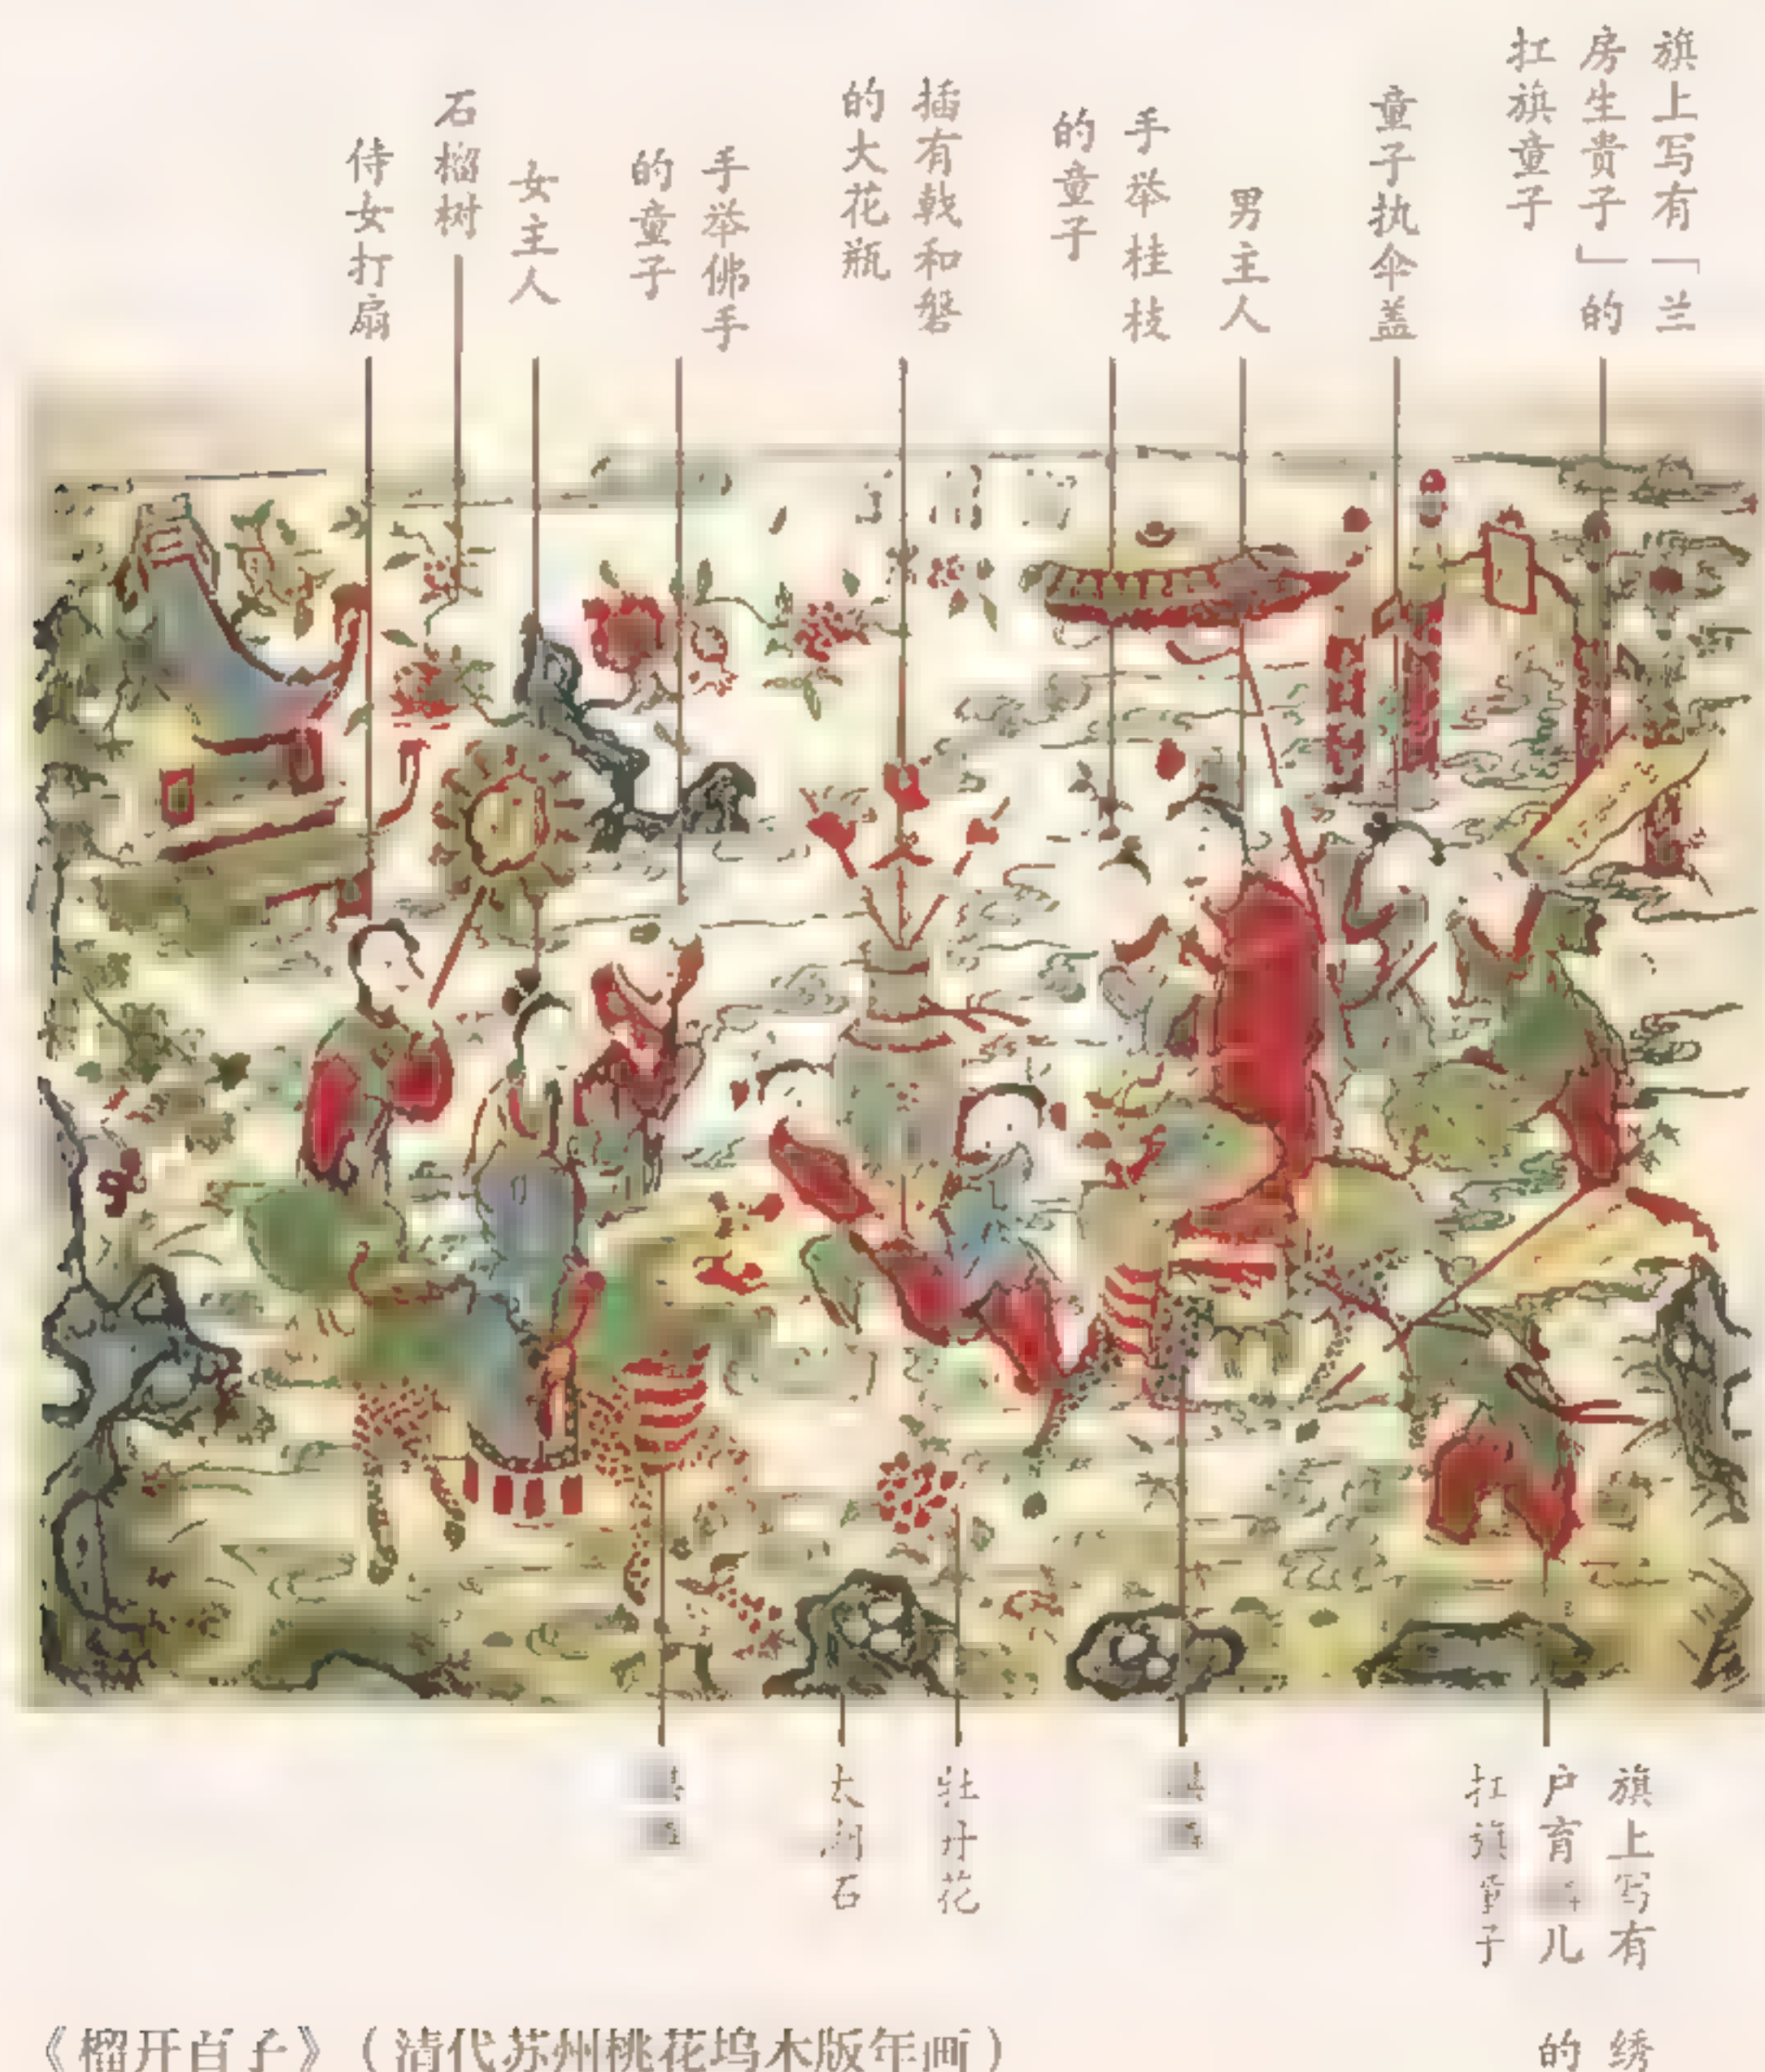 旗上写有「兰
房生贵子」的
扛旗童子
童子执伞盖
男主人
手举桂枝
的童子
插有戟和磬
的大花瓶
手举佛手
的童子
女主人
石榴树
侍女打扇
旗上写有绣
户育儿的
扛旗童子
牡丹花
太湖石
《榴开百子》（清代苏州桃花坞木版年画）